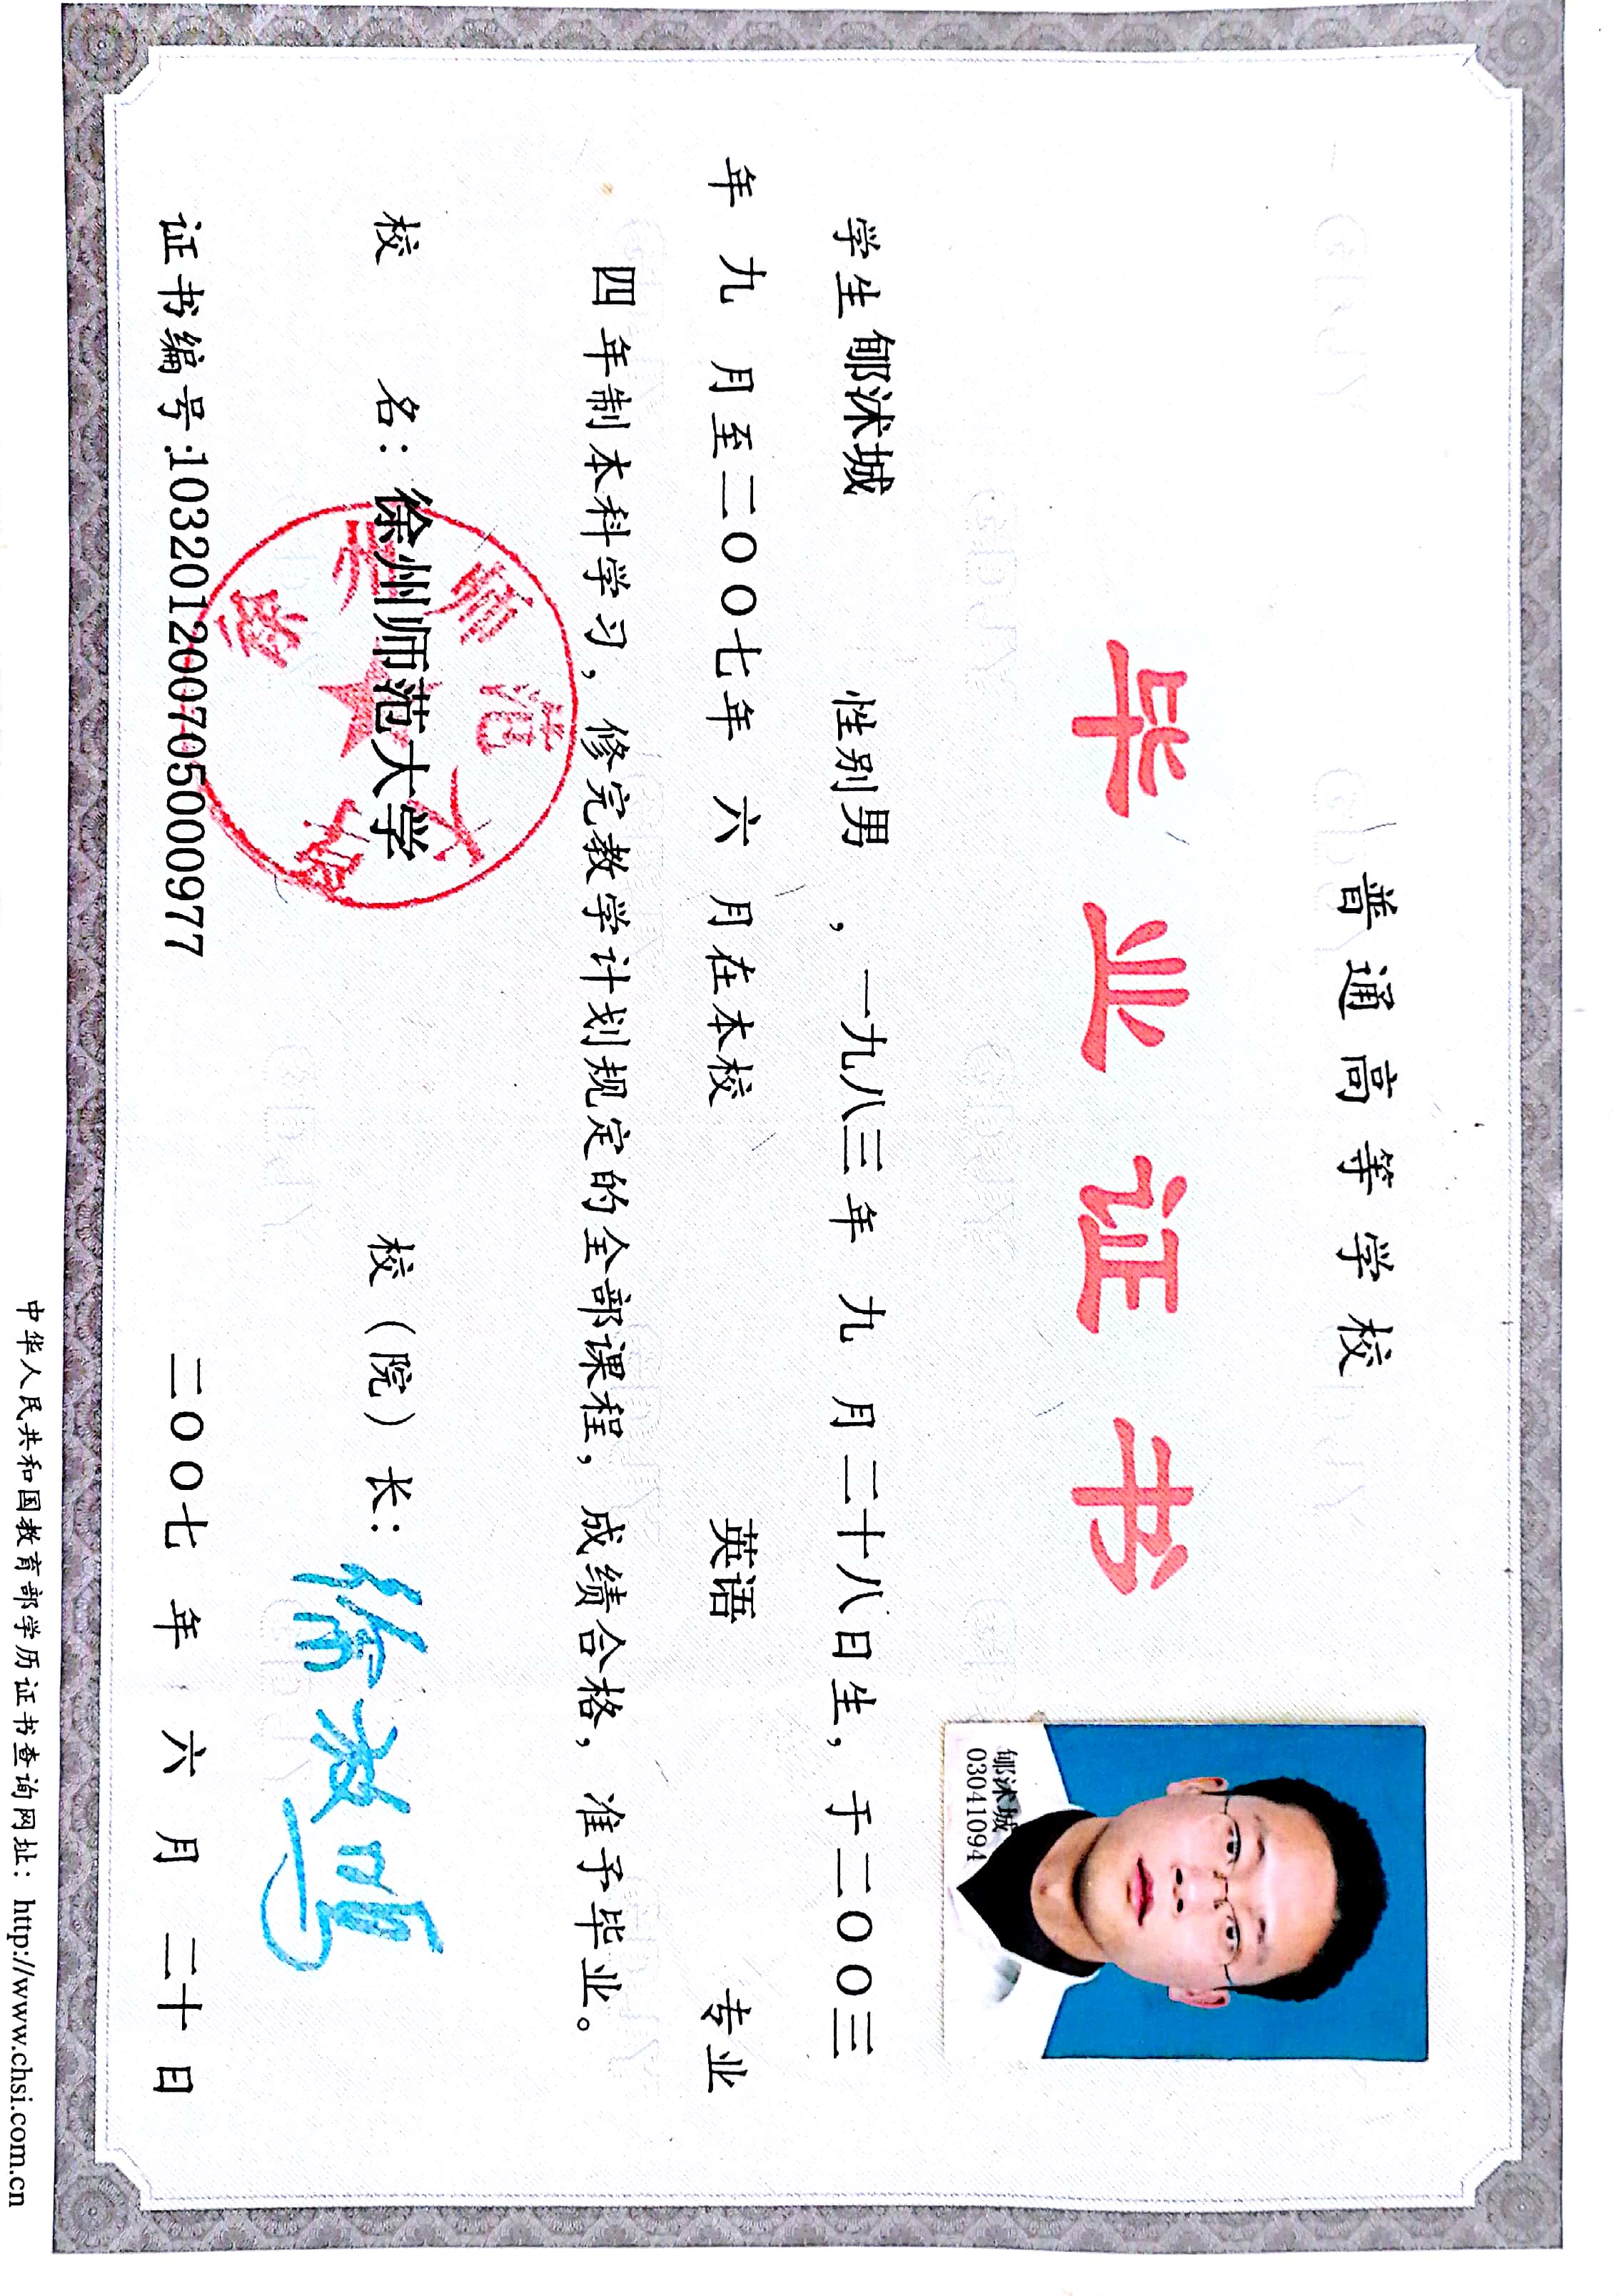 普通高等学校
毕业证书
郇沭城
03041094
学生 郇沭城 性别 男 , 一九八三年 九 月 二十八日生, 于二〇〇三
年 九 月至二〇〇七年 六 月在本校 英语 专业
四年制本科学习, 修完教学计划规定的全部课程, 成绩合格, 准予毕业。
校 名: 徐州师范大学 校(院)长:
徐州师范大学
证书编号:103201200705000977 二〇〇七 年 六 月 二十 日
中华人民共和国教育部学历证书查询网址: http://www.chsi.com.cn